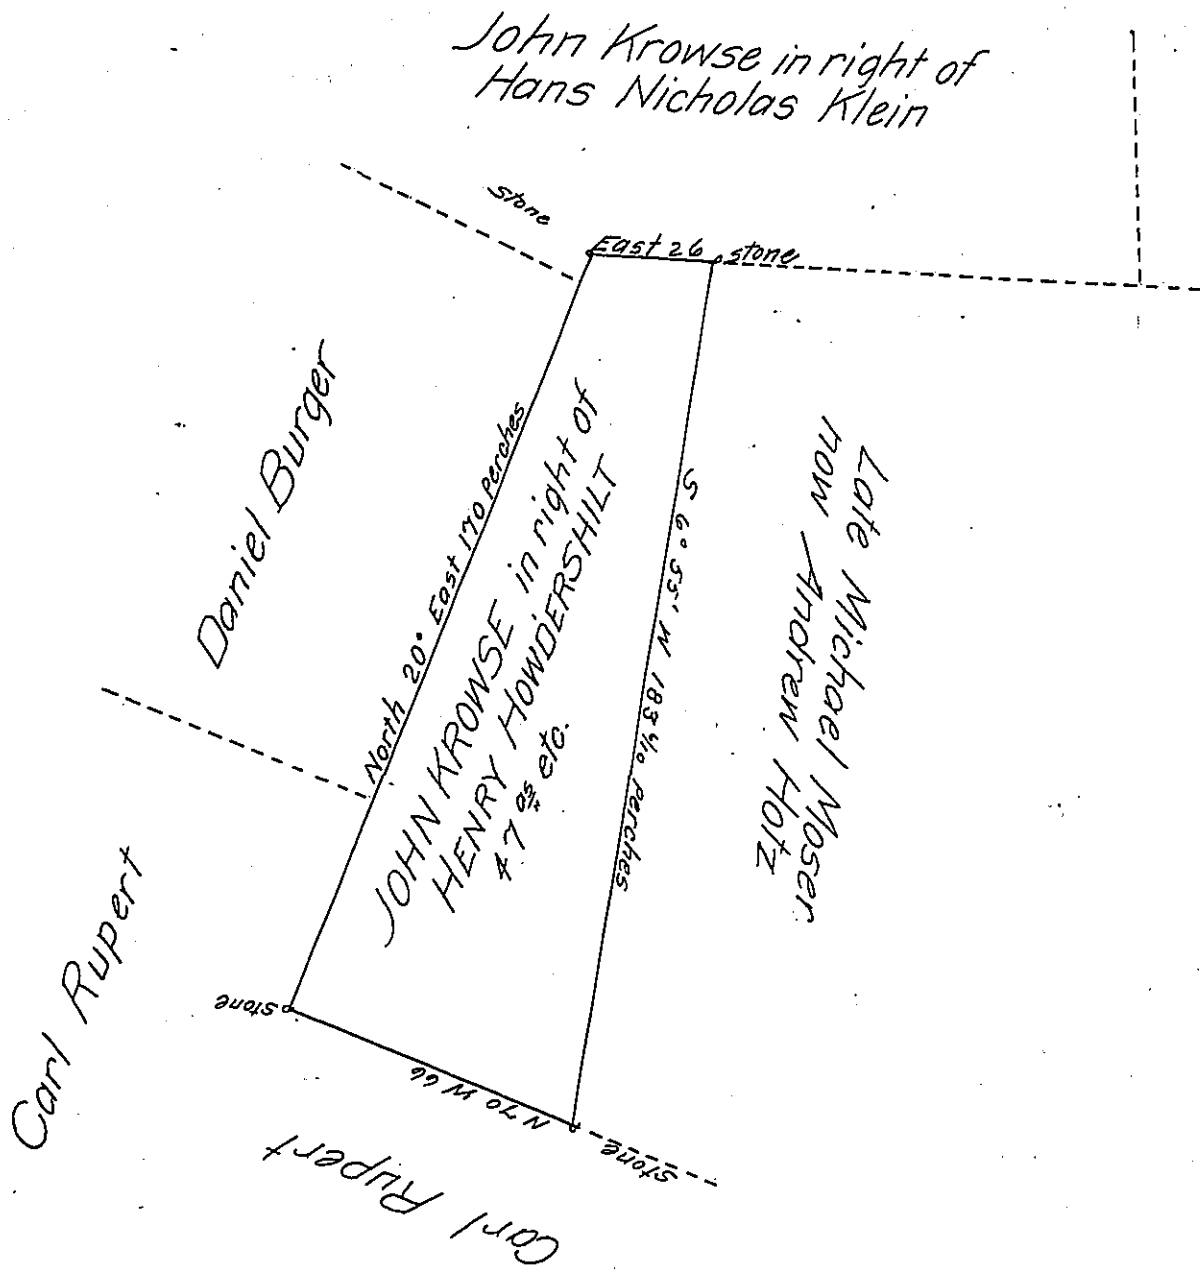 John Krowse in right of
Hans Nicholas Klein
stone
East 26
stone
Daniel Burger
North 20° East 170 Perches
JOHN KROWSE in right of
HENRY HOWDERSHILT
47 as/+ etc.
S 6° 55' W 183 4/10 perches
Late Michael Moser
now Andrew Hotz
Carl Rupert
stone
N 70 W 66
stone
Carl Rupert